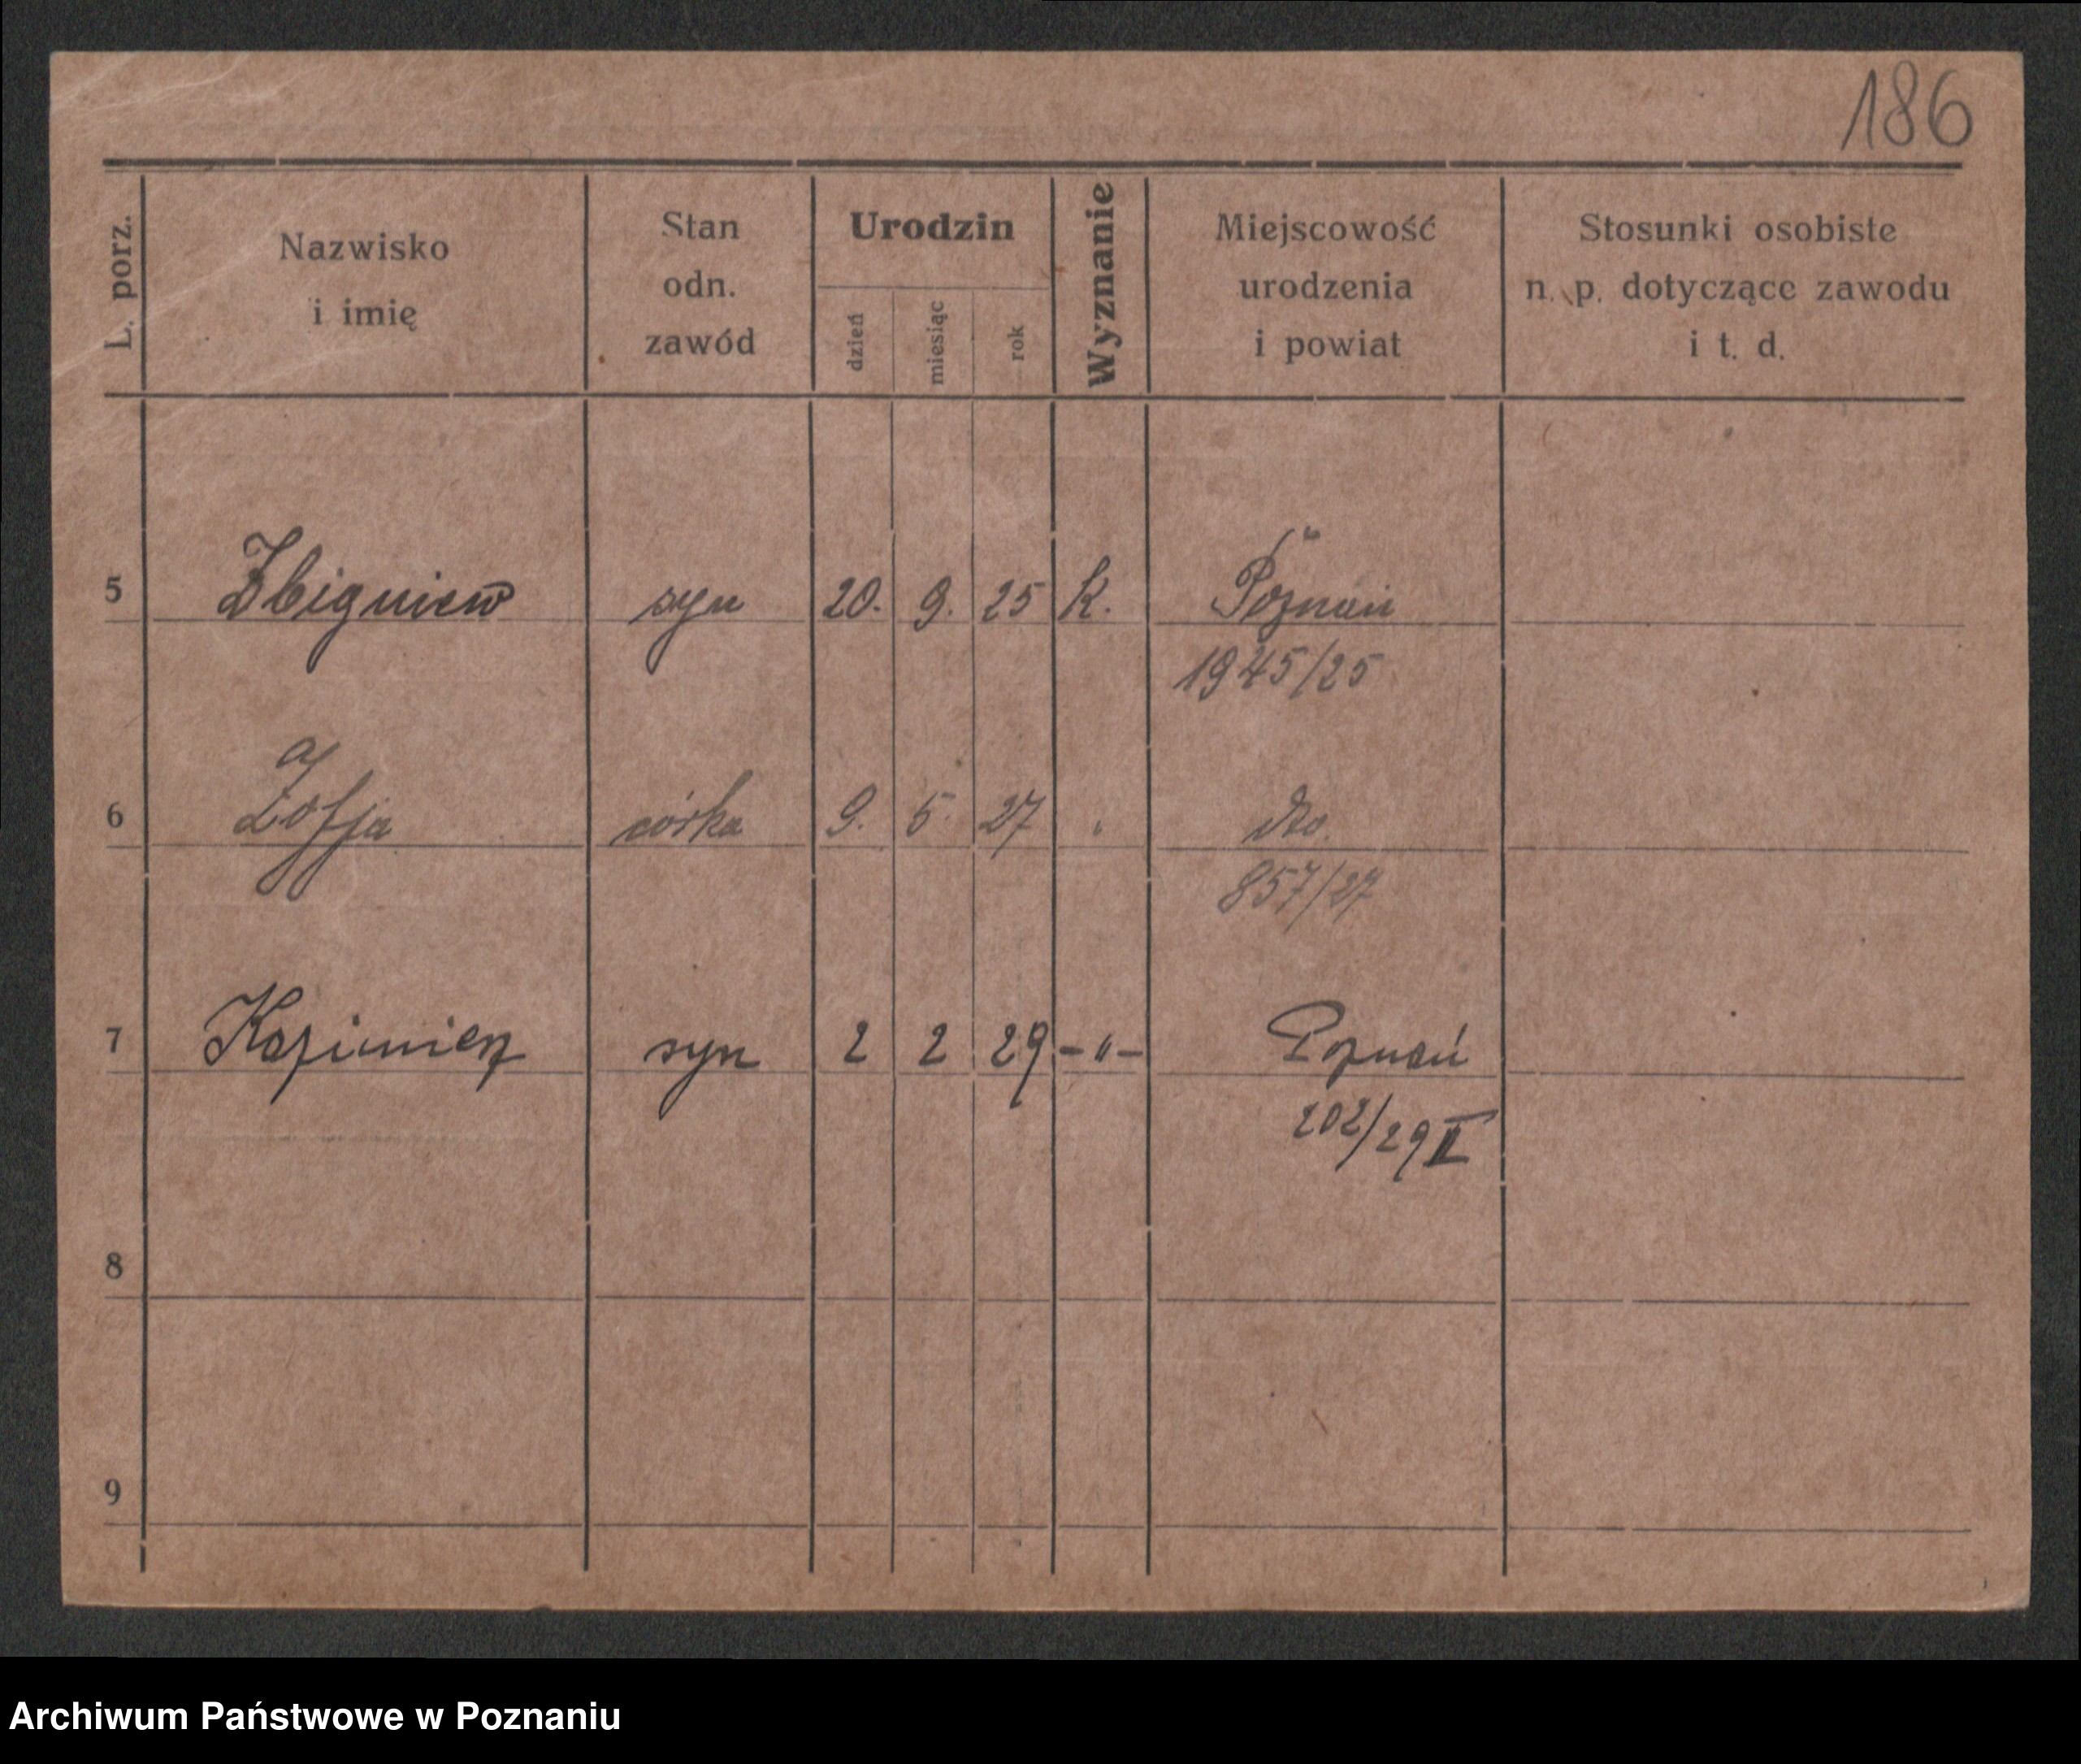 186
L. porz.
Nazwisko
i imię
Stan
odn.
zawód
Urodzin
dzień
miesiąc
rok
Wyznanie
Miejscowość
urodzenia
i powiat
Stosunki osobiste
n. p. dotyczące zawodu
i t. d.
5 Zbigniew syn 20. 9. 25 K. Poznań
1945/25
6 Zofja córka 9. 5. 27 " dto.
857/27
7 Kazimierz syn 2 2 29 -"- Poznań
202/29 II
8
9
Archiwum Państwowe w Poznaniu